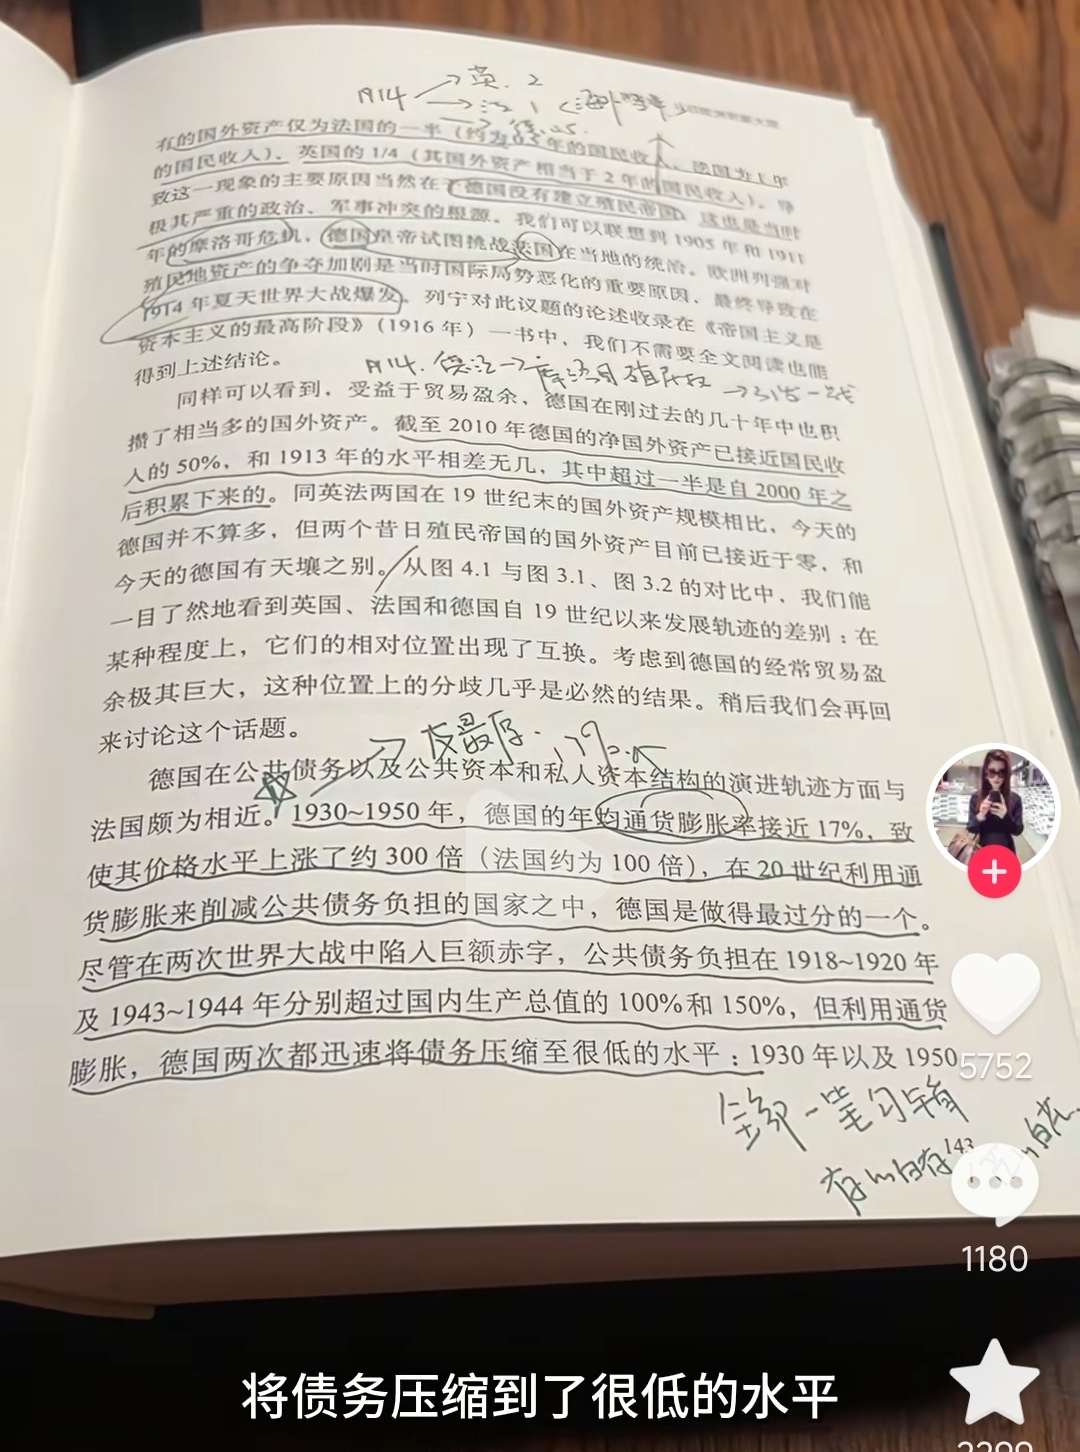 1914 → 英. 2
→ 法 1
有的国外资产仅为法国的一半(约为 年的国民收入、法国为1年
的国民收入)、英国的 1/4(其国外资产相当于 2 年的国民收入)。导
致这一现象的主要原因当然在于德国没有建立殖民帝国,这也是当时
极其严重的政治、军事冲突的根源。我们可以联想到 1905 年和 1911
年的摩洛哥危机,德国皇帝试图挑战法国在当地的统治。欧洲列强对
殖民地资产的争夺加剧是当时国际局势恶化的重要原因,最终导致在
1914 年夏天世界大战爆发。列宁对此议题的论述收录在《帝国主义是
资本主义的最高阶段》(1916 年)一书中,我们不需要全文阅读也能
得到上述结论。
1914. 德法→摩洛哥殖民权→引发一战
同样可以看到,受益于贸易盈余,德国在刚过去的几十年中也积
攒了相当多的国外资产。截至 2010 年德国的净国外资产已接近国民收
入的 50%,和 1913 年的水平相差无几,其中超过一半是自 2000 年之
后积累下来的。同英法两国在 19 世纪末的国外资产规模相比,今天的
德国并不算多,但两个昔日殖民帝国的国外资产目前已接近于零,和
今天的德国有天壤之别。从图 4.1 与图 3.1、图 3.2 的对比中,我们能
一目了然地看到英国、法国和德国自 19 世纪以来发展轨迹的差别:在
某种程度上,它们的相对位置出现了互换。考虑到德国的经常贸易盈
余极其巨大,这种位置上的分歧几乎是必然的结果。稍后我们会再回
来讨论这个话题。
德国在公共债务以及公共资本和私人资本结构的演进轨迹方面与
法国颇为相近。1930~1950 年,德国的年均通货膨胀率接近 17%,致
使其价格水平上涨了约 300 倍(法国约为 100 倍),在 20 世纪利用通
货膨胀来削减公共债务负担的国家之中,德国是做得最过分的一个。
尽管在两次世界大战中陷入巨额赤字,公共债务负担在 1918~1920 年
及 1943~1944 年分别超过国内生产总值的 100%和 150%,但利用通货
膨胀,德国两次都迅速将债务压缩至很低的水平:1930 年以及 1950
全部一笔勾销
143
5752
1180
将债务压缩到了很低的水平